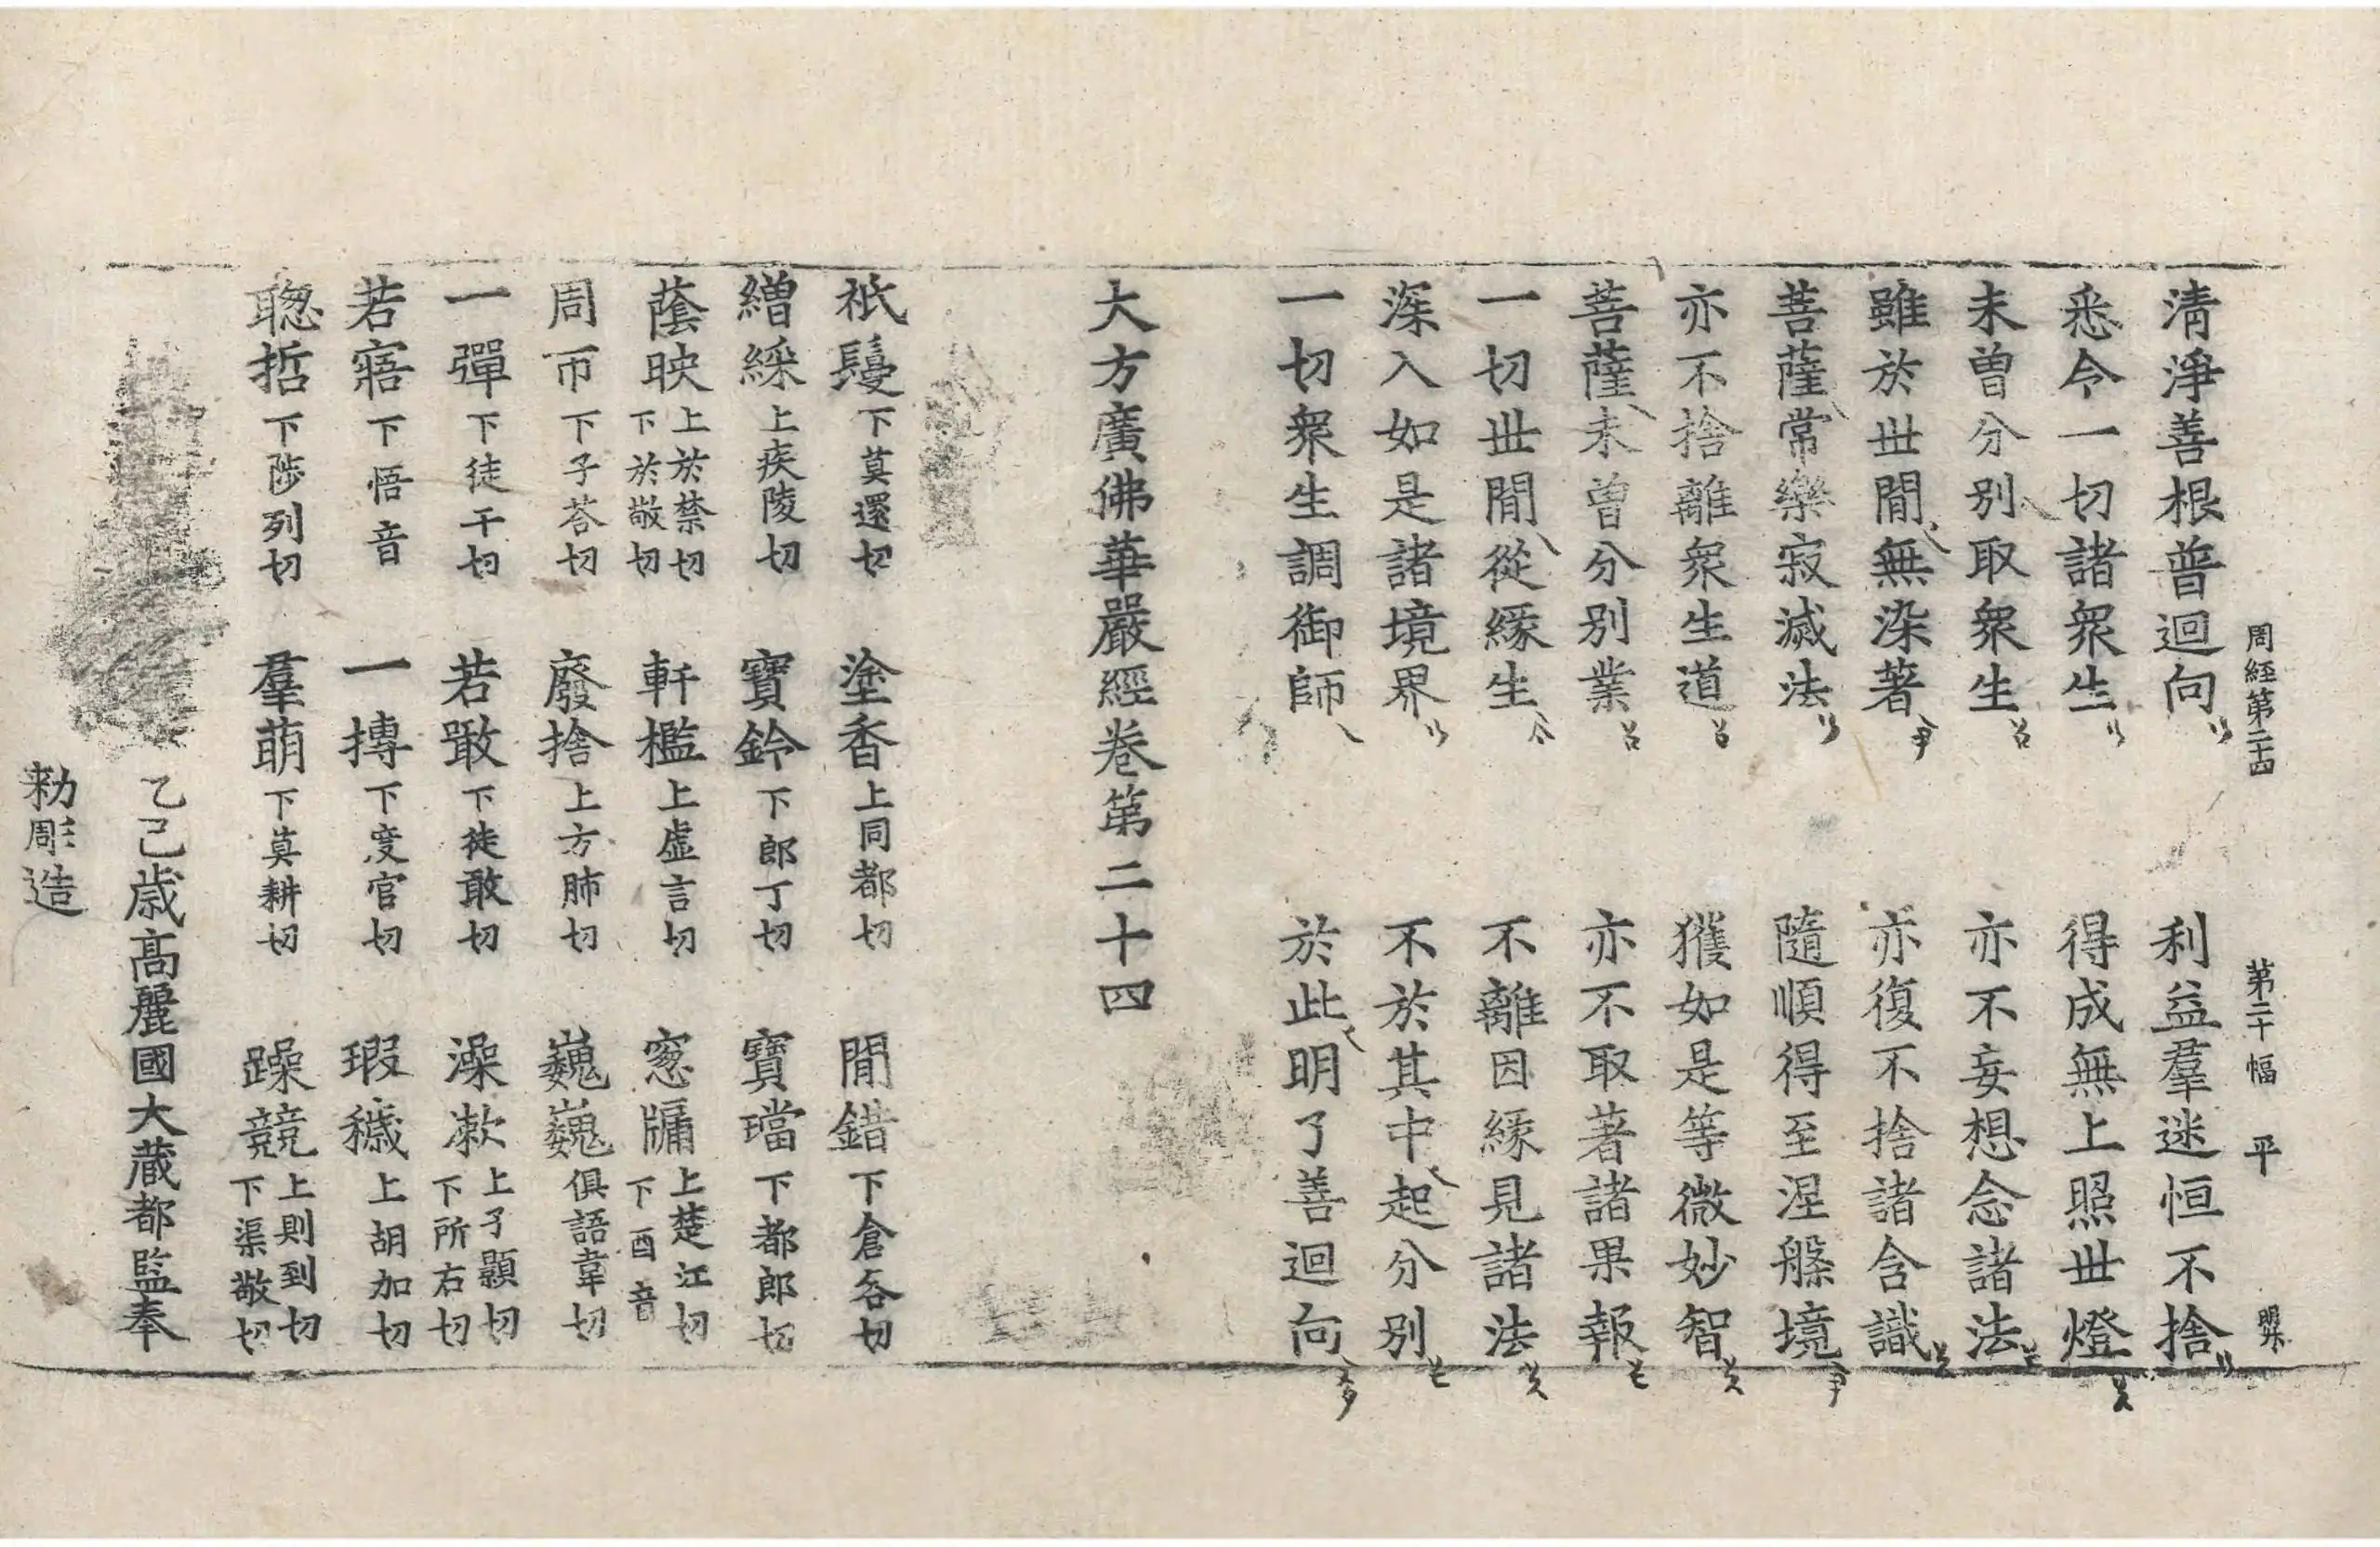 周經第二十四 第二十幅 平
清淨善根普迴向 利益羣迷恒不捨
悉令一切諸衆生 得成無上照世燈
未曾分別取衆生 亦不妄想念諸法
雖於世間無染著 亦復不捨諸含識
菩薩常樂寂滅法 隨順得至涅槃境
亦不捨離衆生道 獲如是等微妙智
菩薩未曾分別業 亦不取著諸果報
一切世間從緣生 不離因緣見諸法
深入如是諸境界 不於其中起分別
一切衆生調御師 於此明了善迴向
大方廣佛華嚴經卷第二十四
衹鬘下莫還切 塗香上同都切 間錯下倉各切
繒綵上疾陵切 寶鈴下郎丁切 寶璫下都郎切
蔭映上於禁切下於敬切 軒檻上虛言切 窓牖上楚江切下酉音
周帀下子荅切 廢捨上方肺切 巍巍俱語韋切
一彈下徒干切 若噉下徒敢切 澡漱上子顥切下所右切
若寤下悟音 一摶下度官切 瑕穢上胡加切
聦哲下陟列切 羣萠下莫耕切 躁競上則到切下渠敬切
乙巳歳高麗國大藏都監奉
勑彫造